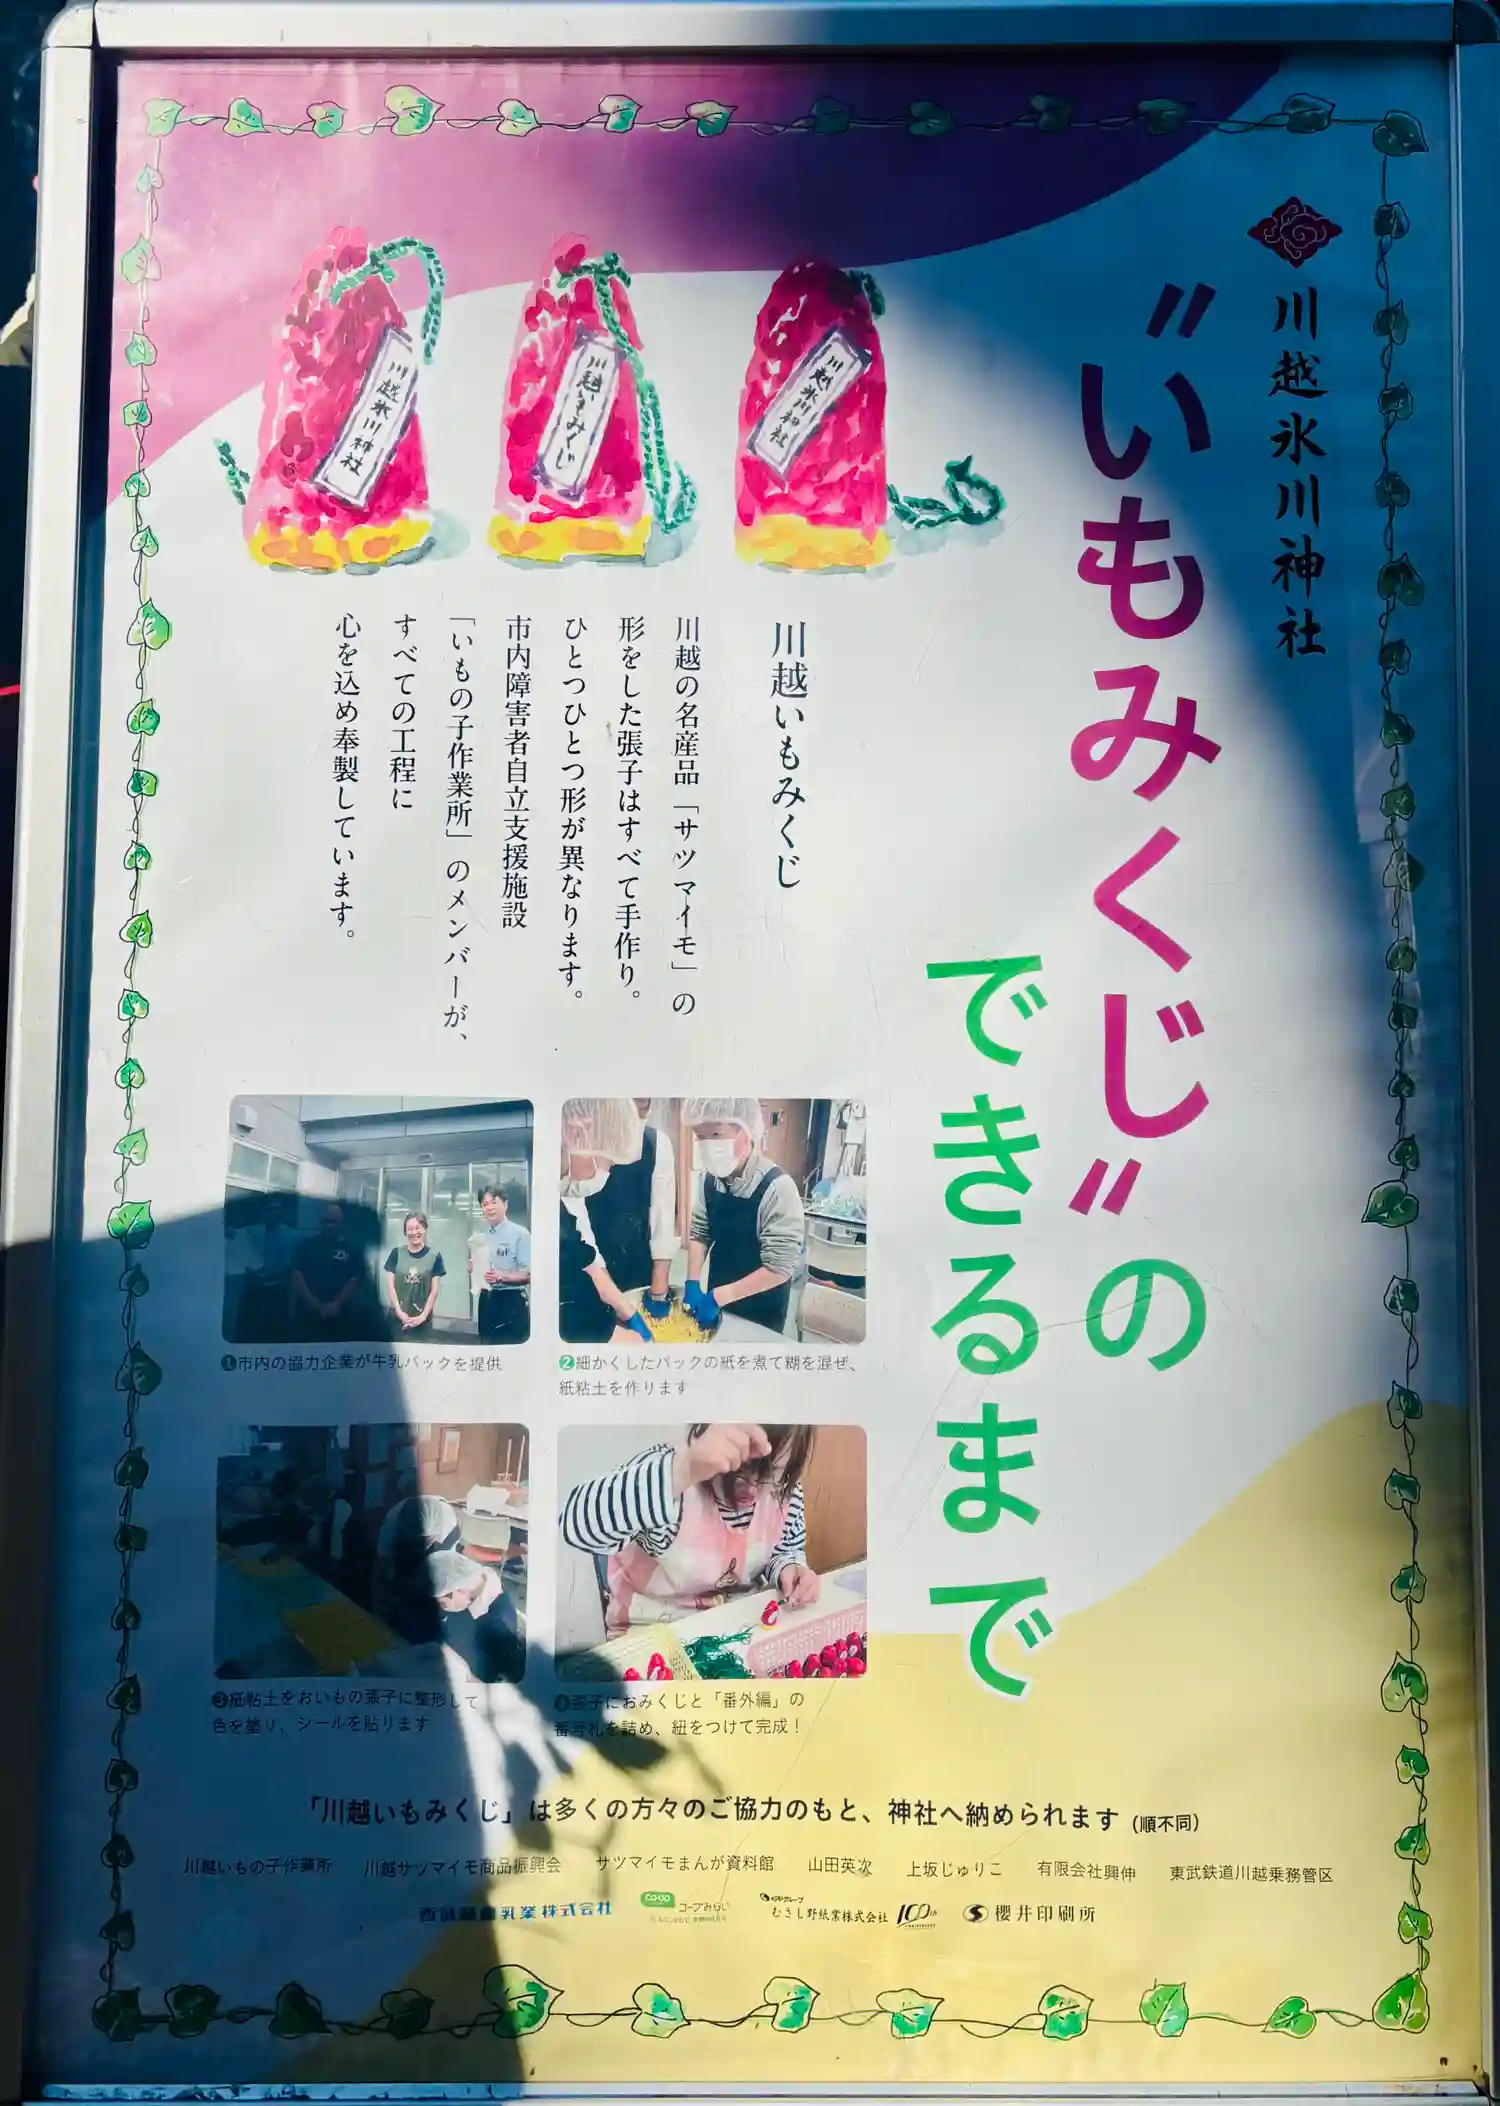 川越氷川神社
“いもみくじ”の
できるまで
川越氷川神社
川越いもみくじ
川越氷川神社
川越いもみくじ
川越の名産品「サツマイモ」の
形をした張子はすべて手作り。
ひとつひとつ形が異なります。
市内障害者自立支援施設
「いもの子作業所」のメンバーが、
すべての工程に
心を込め奉製しています。
❶市内の協力企業が牛乳パックを提供
❷細かくしたパックの紙を煮て糊を混ぜ、
紙粘土を作ります
❸紙粘土をおいもの張子に整形して
色を塗り、シールを貼ります
❹張子におみくじと「番外編」の
番号札を詰め、紐をつけて完成！
「川越いもみくじ」は多くの方々のご協力のもと、神社へ納められます（順不同）
川越いもの子作業所 川越サツマイモ商品振興会 サツマイモまんが資料館 山田英次 上坂じゅりこ 有限会社興伸 東武鉄道川越乗務管区
乳業株式会社 co-op コープみらい KPPグループ むさし野紙業株式会社 100th ANNIVERSARY 櫻井印刷所